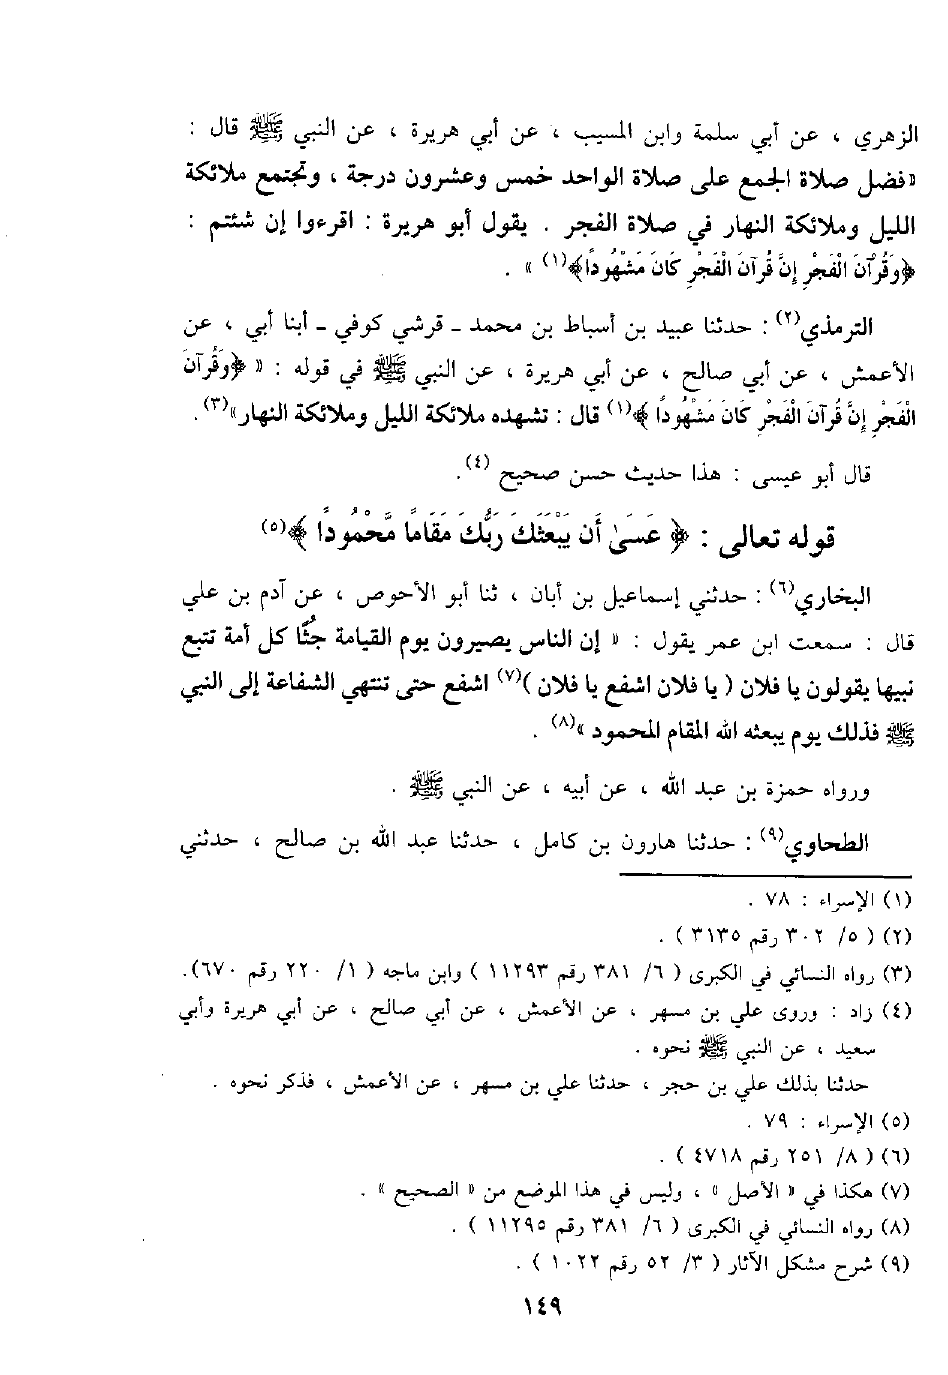 الزهري ، عن أبي سلمة وابن المسيب ، عن أبي هريرة ، عن النبي ﷺ قال :
«فضل صلاة الجمع على صلاة الواحد خمس وعشرون درجة ، وتجتمع ملائكة
الليل وملائكة النهار في صلاة الفجر . يقول أبو هريرة : اقرءوا إن شئتم :
﴿وَقُرْآنَ الْفَجْرِ إِنَّ قُرْآنَ الْفَجْرِ كَانَ مَشْهُوداً﴾(١) » .
الترمذي(٢) : حدثنا عبيد بن أسباط بن محمد ـ قرشي كوفي ـ أبنا أبي ، عن
الأعمش ، عن أبي صالح ، عن أبي هريرة ، عن النبي ﷺ في قوله : « ﴿وَقُرآنَ
الْفَجْرِ إِنَّ قُرآنَ الْفَجْرِ كَانَ مَشْهُوداً ﴾(١) قال : تشهده ملائكة الليل وملائكة النهار»(٣).
قال أبو عيسى : هذا حديث حسن صحيح (٤).
قوله تعالى : ﴿ عَسَىٰ أَن يَبْعَثَكَ رَبُّكَ مَقَاماً مَّحْمُوداً ﴾(٥)
البخاري(٦) : حدثني إسماعيل بن أبان ، ثنا أبو الأحوص ، عن آدم بن علي
قال : سمعت ابن عمر يقول : « إن الناس يصيرون يوم القيامة جُثًا كل أمة تتبع
نبيها يقولون يا فلان ( يا فلان اشفع يا فلان )(٧) اشفع حتى تنتهي الشفاعة إلى النبي
ﷺ فذلك يوم يبعثه الله المقام المحمود »(٨) .
ورواه حمزة بن عبد الله ، عن أبيه ، عن النبي ﷺ .
الطحاوي(٩) : حدثنا هارون بن كامل ، حدثنا عبد الله بن صالح ، حدثني
(١) الإسراء : ٧٨ .
(٢) ( ٥/ ٣٠٢ رقم ٣١٣٥ ) .
(٣) رواه النسائي في الكبرى ( ٦/ ٣٨١ رقم ١١٢٩٣ ) وابن ماجه ( ١/ ٢٢٠ رقم ٦٧٠).
(٤) زاد : وروى علي بن مسهر ، عن الأعمش ، عن أبي صالح ، عن أبي هريرة وأبي
سعيد ، عن النبي ﷺ نحوه .
حدثنا بذلك علي بن حجر ، حدثنا علي بن مسهر ، عن الأعمش ، فذكر نحوه .
(٥) الإسراء : ٧٩ .
(٦) ( ٨/ ٢٥١ رقم ٤٧١٨ ) .
(٧) هكذا في « الأصل » ، وليس في هذا الموضع من « الصحيح » .
(٨) رواه النسائي في الكبرى ( ٦/ ٣٨١ رقم ١١٢٩٥ ) .
(٩) شرح مشكل الآثار ( ٣/ ٥٢ رقم ١٠٢٢ ) .
١٤٩